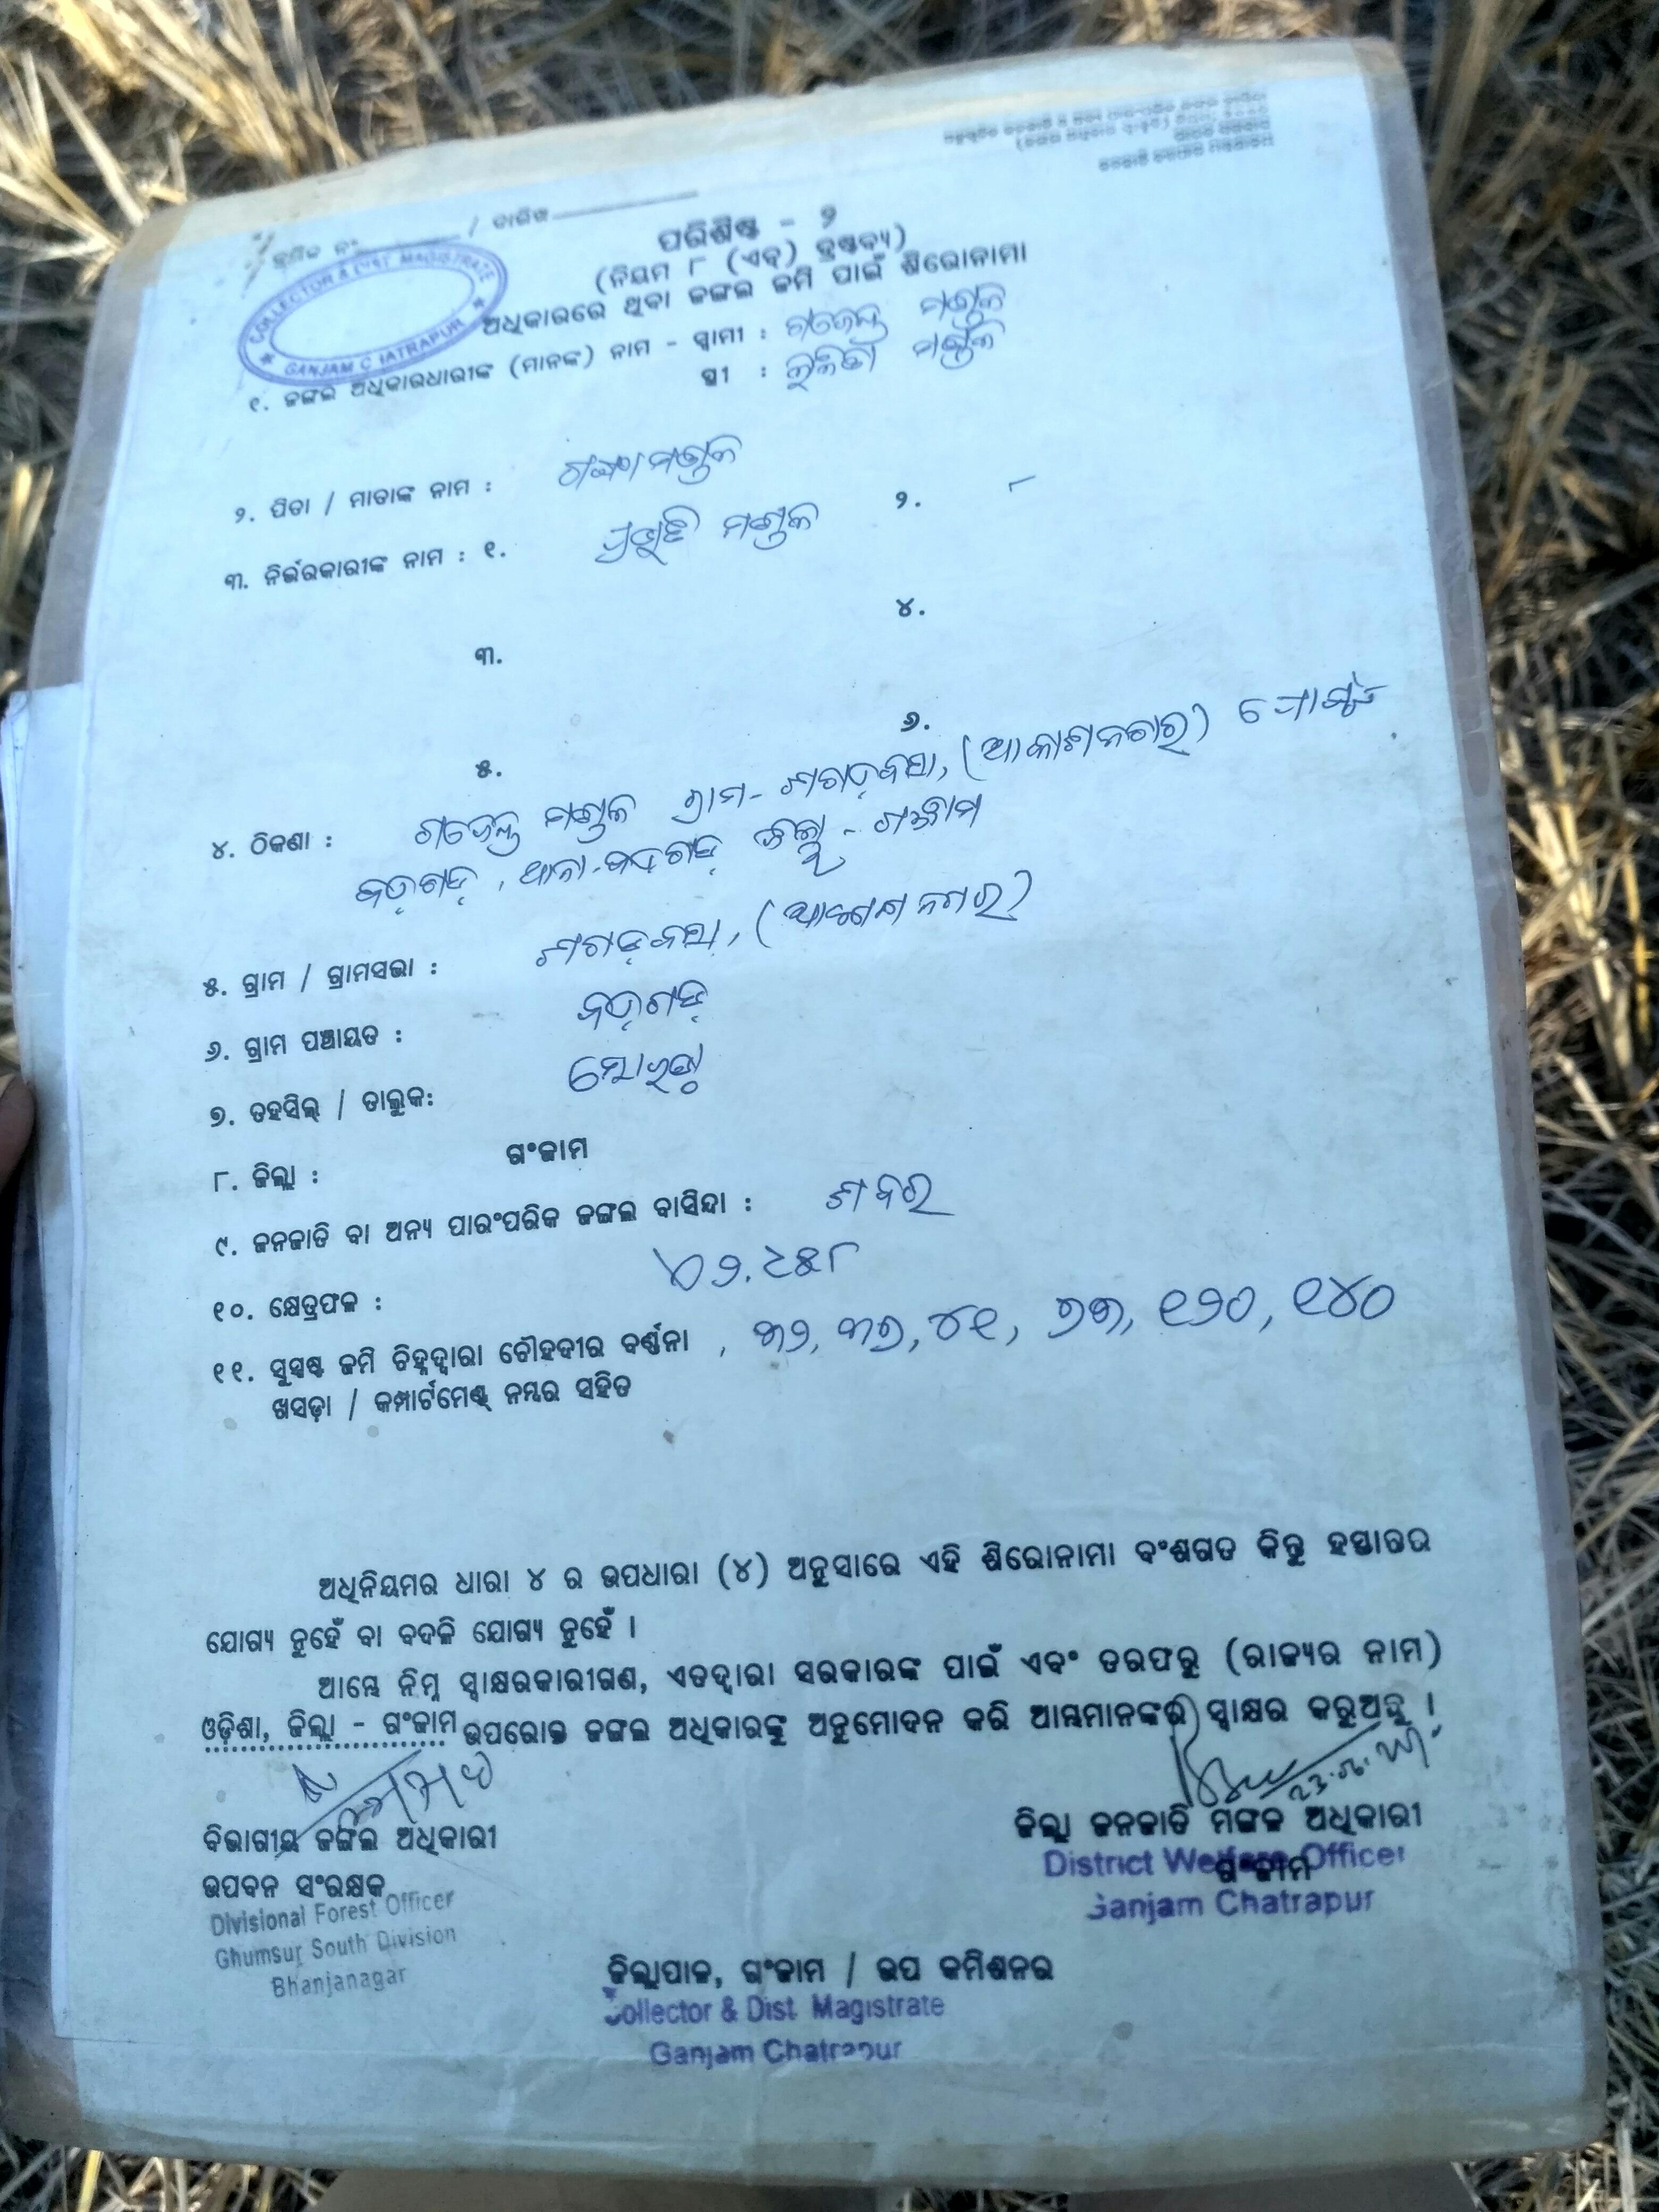 ଜନଜାତି ବ୍ୟାପାର ମନ୍ତ୍ରଣାଳୟ
କ୍ରମିକ ନଂ / ତାରିଖ
COLLECTOR & DIST. MAGISTRATE
GANJAM CHATRAPUR
ପରିଶିଷ୍ଟ - ୨
(ନିୟମ ୮ (ଏଚ୍) ଦ୍ରଷ୍ଟବ୍ୟ)
ଅଧିକାରରେ ଥିବା ଜଙ୍ଗଲ ଜମି ପାଇଁ ଶିରୋନାମା
୧. ଜଙ୍ଗଲ ଅଧିକାରଧାରୀଙ୍କ (ମାନଙ୍କ) ନାମ - ସ୍ୱାମୀ : ଗଜେନ୍ଦ୍ର ମଣ୍ଡଳ
ସ୍ତ୍ରୀ : ମଣ୍ଡଳ
୨. ପିତା / ମାତାଙ୍କ ନାମ : ମଣ୍ଡଳ
୩. ନିର୍ଭରକାରୀଙ୍କ ନାମ : ୧. ମଣ୍ଡଳ ୨.
୩. ୪.
୫. ୬.
୪. ଠିକଣା : ଗଜେନ୍ଦ୍ର ମଣ୍ଡଳ ଗ୍ରାମ- ଶଗଡ଼ବସା, (ଆକାଶନଗର) ପୋଷ୍ଟ
ବଡ଼ଗଡ଼, ଥାନା-ବଡ଼ଗଡ଼ ଜିଲ୍ଲା - ଗଞ୍ଜାମ
୫. ଗ୍ରାମ / ଗ୍ରାମସଭା : ଶଗଡ଼ବସା, (ଆକାଶନଗର)
୬. ଗ୍ରାମ ପଞ୍ଚାୟତ : ବଡ଼ଗଡ଼
୭. ତହସିଲ୍ / ତାଲୁକ: ସୋରଡ଼ା
୮. ଜିଲ୍ଲା : ଗଂଜାମ
୯. ଜନଜାତି ବା ଅନ୍ୟ ପାରଂପରିକ ଜଙ୍ଗଲ ବାସିନ୍ଦା : ଶବର
୧୦. କ୍ଷେତ୍ରଫଳ :
୧୧. ସୁସ୍ପଷ୍ଟ ଜମି ଚିହ୍ନଦ୍ୱାରା ଚୌହଦୀର ବର୍ଣ୍ଣନା , ୩୨, ୩୭, ୪୧, ୭୩, ୧୨୦, ୧୪୦
ଖସଡ଼ା / କମ୍ପାର୍ଟମେଣ୍ଟ୍ ନମ୍ବର ସହିତ
ଅଧିନିୟମର ଧାରା ୪ ର ଉପଧାରା (୪) ଅନୁସାରେ ଏହି ଶିରୋନାମା ବଂଶଗତ କିନ୍ତୁ ହସ୍ତାନ୍ତର
ଯୋଗ୍ୟ ନୁହେଁ ବା ବଦଳି ଯୋଗ୍ୟ ନୁହେଁ ।
ଆମ୍ଭେ ନିମ୍ନ ସ୍ୱାକ୍ଷରକାରୀଗଣ, ଏତଦ୍ୱାରା ସରକାରଙ୍କ ପାଇଁ ଏବଂ ତରଫରୁ (ରାଜ୍ୟର ନାମ)
ଓଡ଼ିଶା, ଜିଲ୍ଲା - ଗଂଜାମ ଉପରୋକ୍ତ ଜଙ୍ଗଲ ଅଧିକାରଙ୍କୁ ଅନୁମୋଦନ କରି ଆମ୍ଭମାନଙ୍କର ସ୍ୱାକ୍ଷର କରୁଅଛୁ ।
ବିଭାଗୀୟ ଜଙ୍ଗଲ ଅଧିକାରୀ
ଉପବନ ସଂରକ୍ଷକ
Divisional Forest Officer
Ghumsur South Division
Bhanjanagar
ଜିଲ୍ଲା ଜନଜାତି ମଙ୍ଗଳ ଅଧିକାରୀ
ଗଂଜାମ
District Welfare Officer
Ganjam Chatrapur
ଜିଲ୍ଲାପାଳ, ଗଂଜାମ / ଉପ କମିଶନର
Collector & Dist. Magistrate
Ganjam Chatrapur